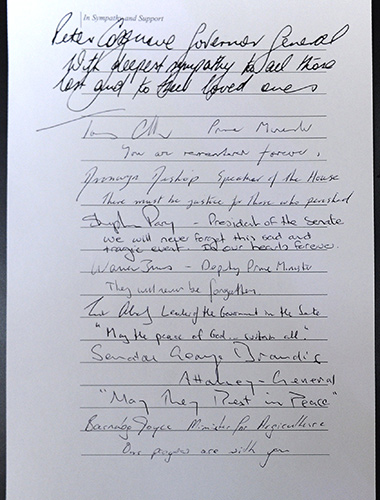 In Sympathy and Support
Peter Cosgrove Governor General
With deepest sympathy to all those
lost and to their loved ones
Prime Minister
You are remembered forever.
Bronwyn Bishop Speaker of the House
There must be justice for those who perished
Stephen Parry - President of the Senate
We will never forget this sad and
tragic event. In our hearts forever.
Warren Truss - Deputy Prime Minister
They will never be forgotten
Leader of the Government in the Senate
"May the peace of God ... within all."
Senator George Brandis
Attorney-General
"May They Rest in Peace"
Barnaby Joyce Minister for Agriculture
Our prayers are with you